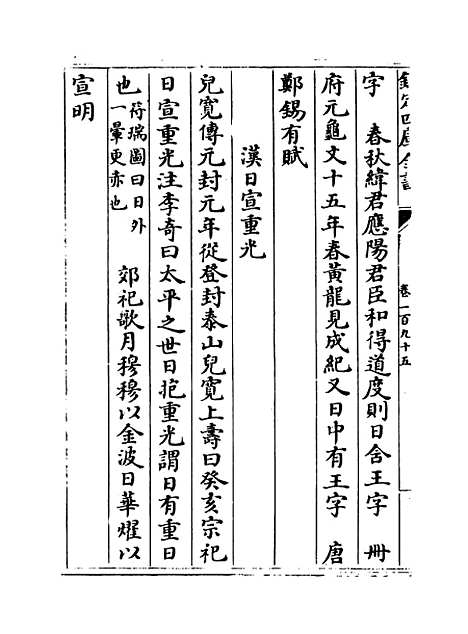 欽定四庫全書
卷一百九十五
字　春秋緯君應陽君臣和得道度則日含王字　冊
府元龜文十五年春黃龍見成紀又日中有王字　唐
鄭錫有賦
漢日宣重光
兒寛傳元封元年從登封泰山兒寛上壽曰癸亥宗祀
日宣重光注李奇曰太平之世日抱重光謂日有重日
也符瑞圖曰日外一暈更赤也　郊祀歌月穆穆以金波日華燿以
宣明